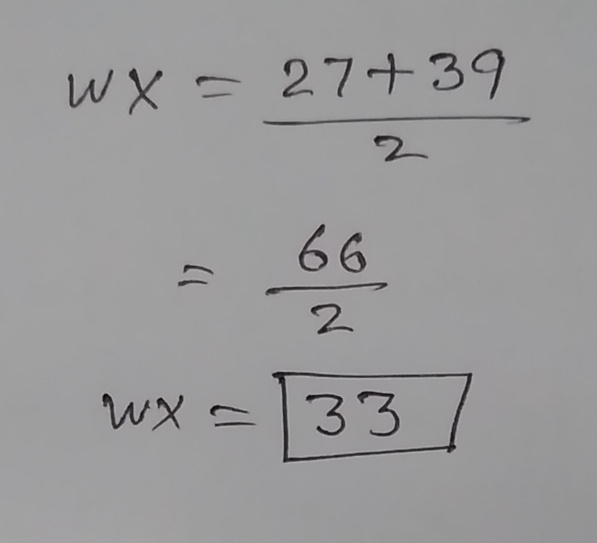 WX = 27+39
2
= 66
2
WX = 33